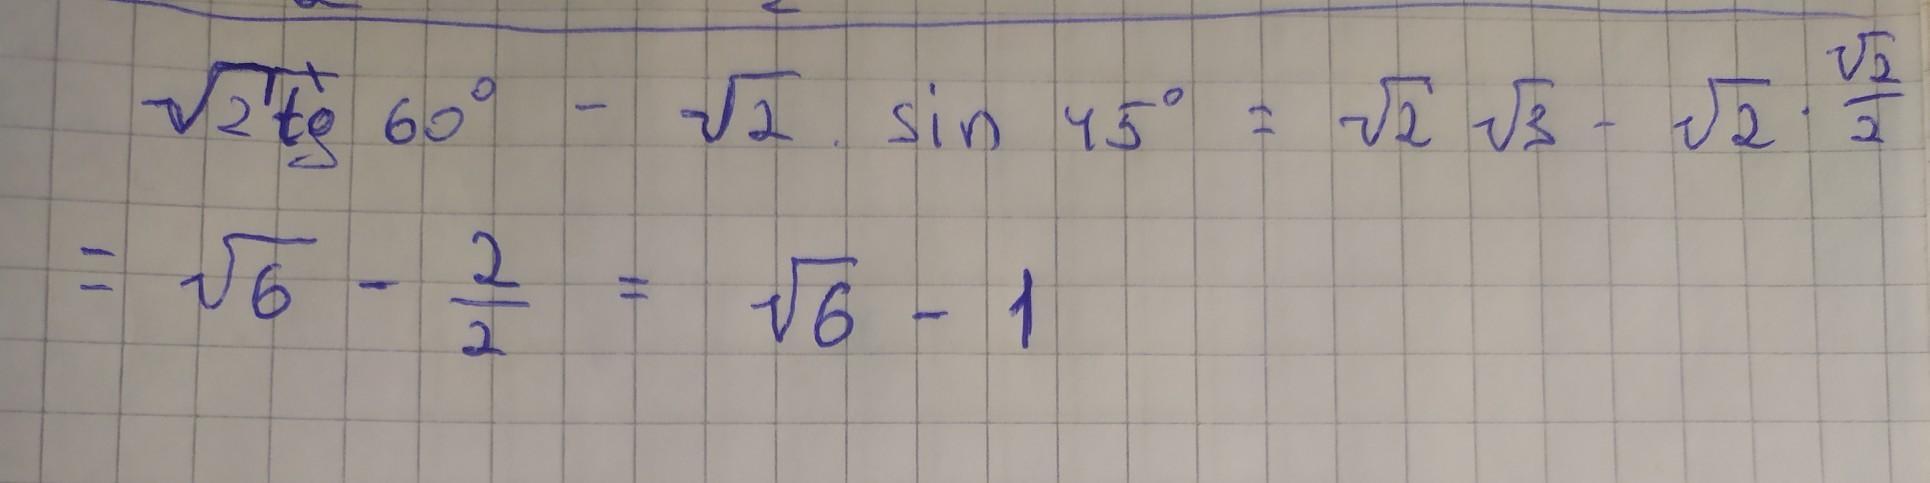 √2 tg 60° - √2 . sin 45° = √2 √3 - √2 · √2/2
= √6 - 2/2 = √6 - 1